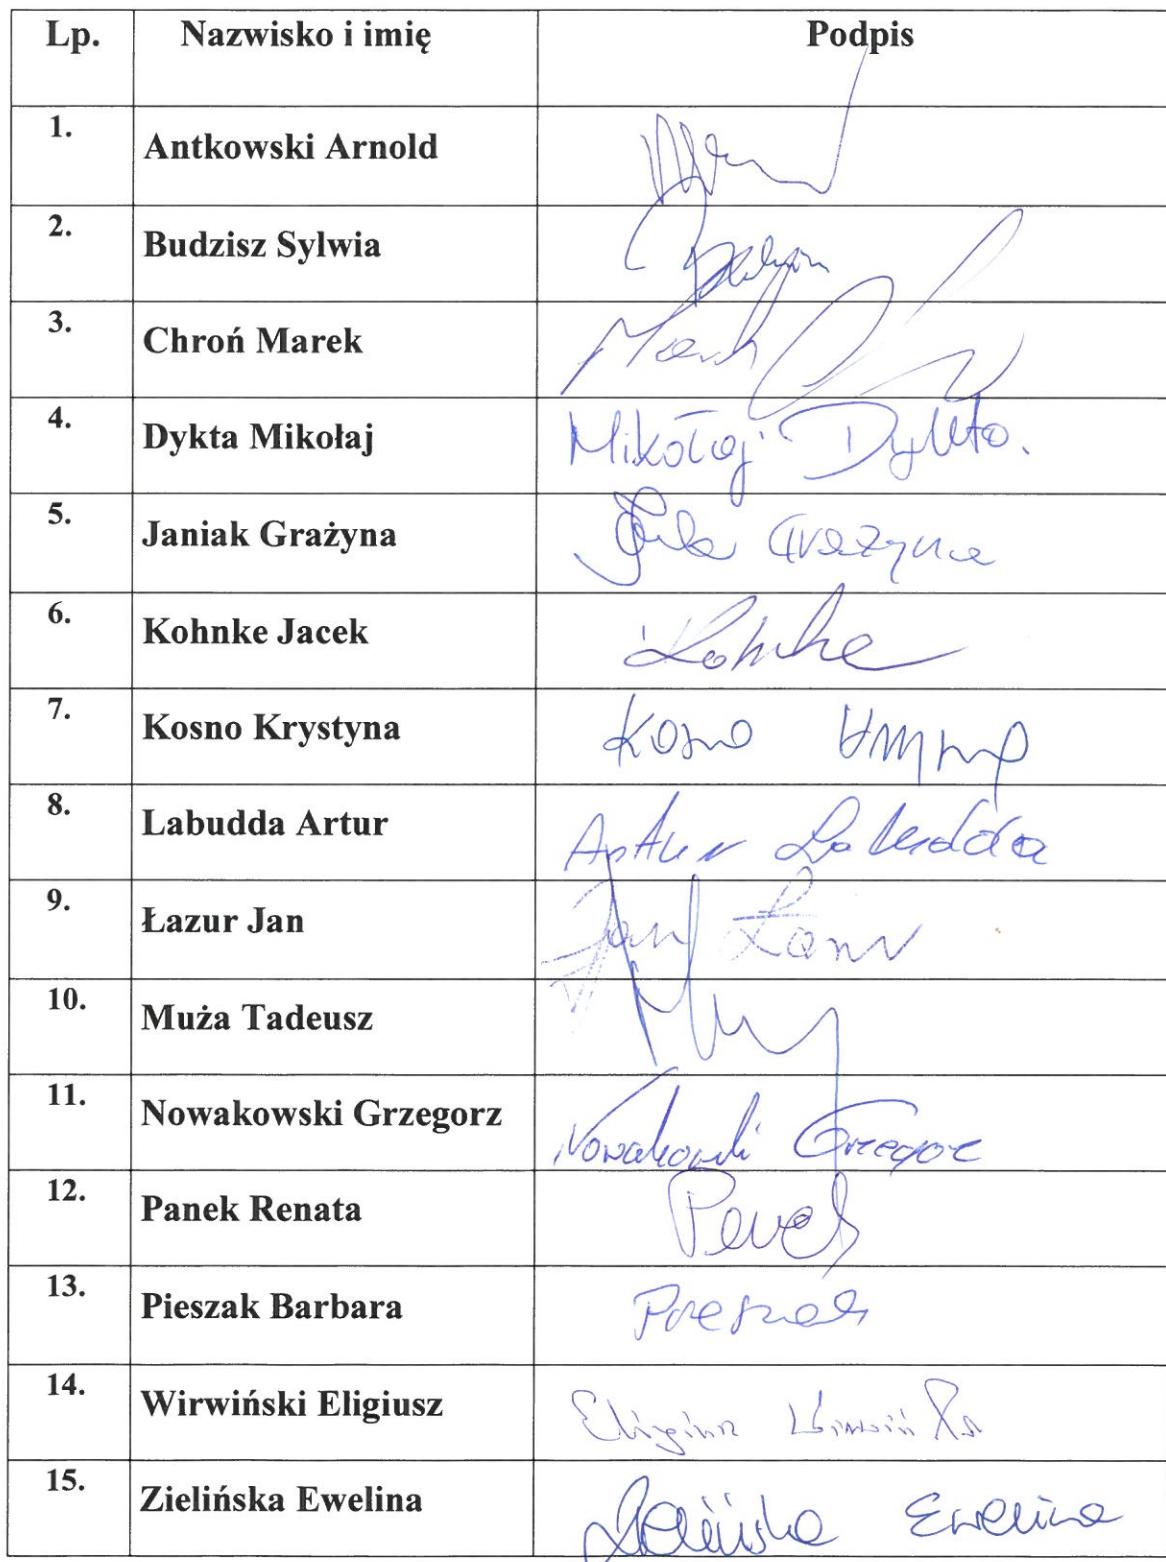 Lp. Nazwisko i imię Podpis
1. Antkowski Arnold
2. Budzisz Sylwia
3. Chroń Marek Marek
4. Dykta Mikołaj Mikołaj Dykta.
5. Janiak Grażyna Grażyna
6. Kohnke Jacek Kohnke
7. Kosno Krystyna Kosno
8. Labudda Artur Artur Labudda
9. Łazur Jan Jan Łazur
10. Muża Tadeusz
11. Nowakowski Grzegorz Nowakowski Grzegorz
12. Panek Renata Panek
13. Pieszak Barbara Pieszak
14. Wirwiński Eligiusz Eligiusz Wirwiński
15. Zielińska Ewelina Zielińska Ewelina